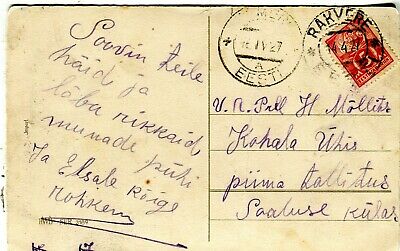 Soovin teile
häid ja
lõbu rikkaid
munade pühi
Ja Elsale kõige
rohkem
IV 27
A
EESTI
RAKVERE
V. N. Prl H Möllits
Kohala Ühis
piima tallitus
Saaluse külas